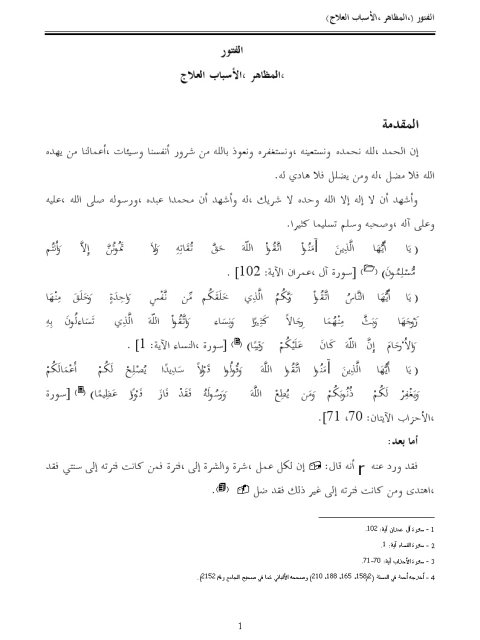 الفتور (،المظاهر ،الأسباب العلاج)
الفتور
،المظاهر ،الأسباب العلاج
المقدمة
إن الحمد ،لله نحمده ونستعينه ،ونستغفره ونعوذ بالله من شرور أنفسنا وسيئات ،أعمالنا من يهده
الله فلا مضل ،له ومن يضلل فلا هادي له.
وأشهد أن لا إله إلا الله وحده لا شريك ،له وأشهد أن محمدا عبده ،ورسوله صلى الله ،عليه
وعلى آله ،وصحبه وسلم تسليما كثيرا.
﴿ يَا أَيُّهَا الَّذِينَ آمَنُواْ اتَّقُواْ اللّهَ حَقَّ تُقَاتِهِ وَلاَ تَمُوتُنَّ إِلاَّ وَأَنتُم
مُّسْلِمُونَ﴾ [سورة آل ،عمران الآية: 102] .
﴿ يَا أَيُّهَا النَّاسُ اتَّقُواْ رَبَّكُمُ الَّذِي خَلَقَكُم مِّن نَّفْسٍ وَاحِدَةٍ وَخَلَقَ مِنْهَا
زَوْجَهَا وَبَثَّ مِنْهُمَا رِجَالاً كَثِيرًا وَنِسَاء وَاتَّقُواْ اللّهَ الَّذِي تَسَاءلُونَ بِهِ
وَالأَرْحَامَ إِنَّ اللّهَ كَانَ عَلَيْكُمْ رَقِيبًا﴾ [سورة ،النساء الآية: 1] .
﴿ يَا أَيُّهَا الَّذِينَ آمَنُوا اتَّقُوا اللَّهَ وَقُولُوا قَوْلًا سَدِيدًا يُصْلِحْ لَكُمْ أَعْمَالَكُمْ
وَيَغْفِرْ لَكُمْ ذُنُوبَكُمْ وَمَن يُطِعْ اللَّهَ وَرَسُولَهُ فَقَدْ فَازَ فَوْزًا عَظِيمًا﴾ [سورة
،الأحزاب الآيتان: 70، 71].
أما بعد:
فقد ورد عنه r أنه قال: إن لكل عمل ،شرة والشرة إلى ،فترة فمن كانت فترته إلى سنتي فقد
،اهتدى ومن كانت فترته إلى غير ذلك فقد ضل .
1 - سورة آل عمران آية: 102.
2 - سورة النساء آية: 1.
3 - سورة الأحزاب آية: 70-71.
4 - أخرجه أحمد في المسند (2/158، 165، 188، 210) وصححه الألباني كما في صحيح الجامع رقم 2152.
1